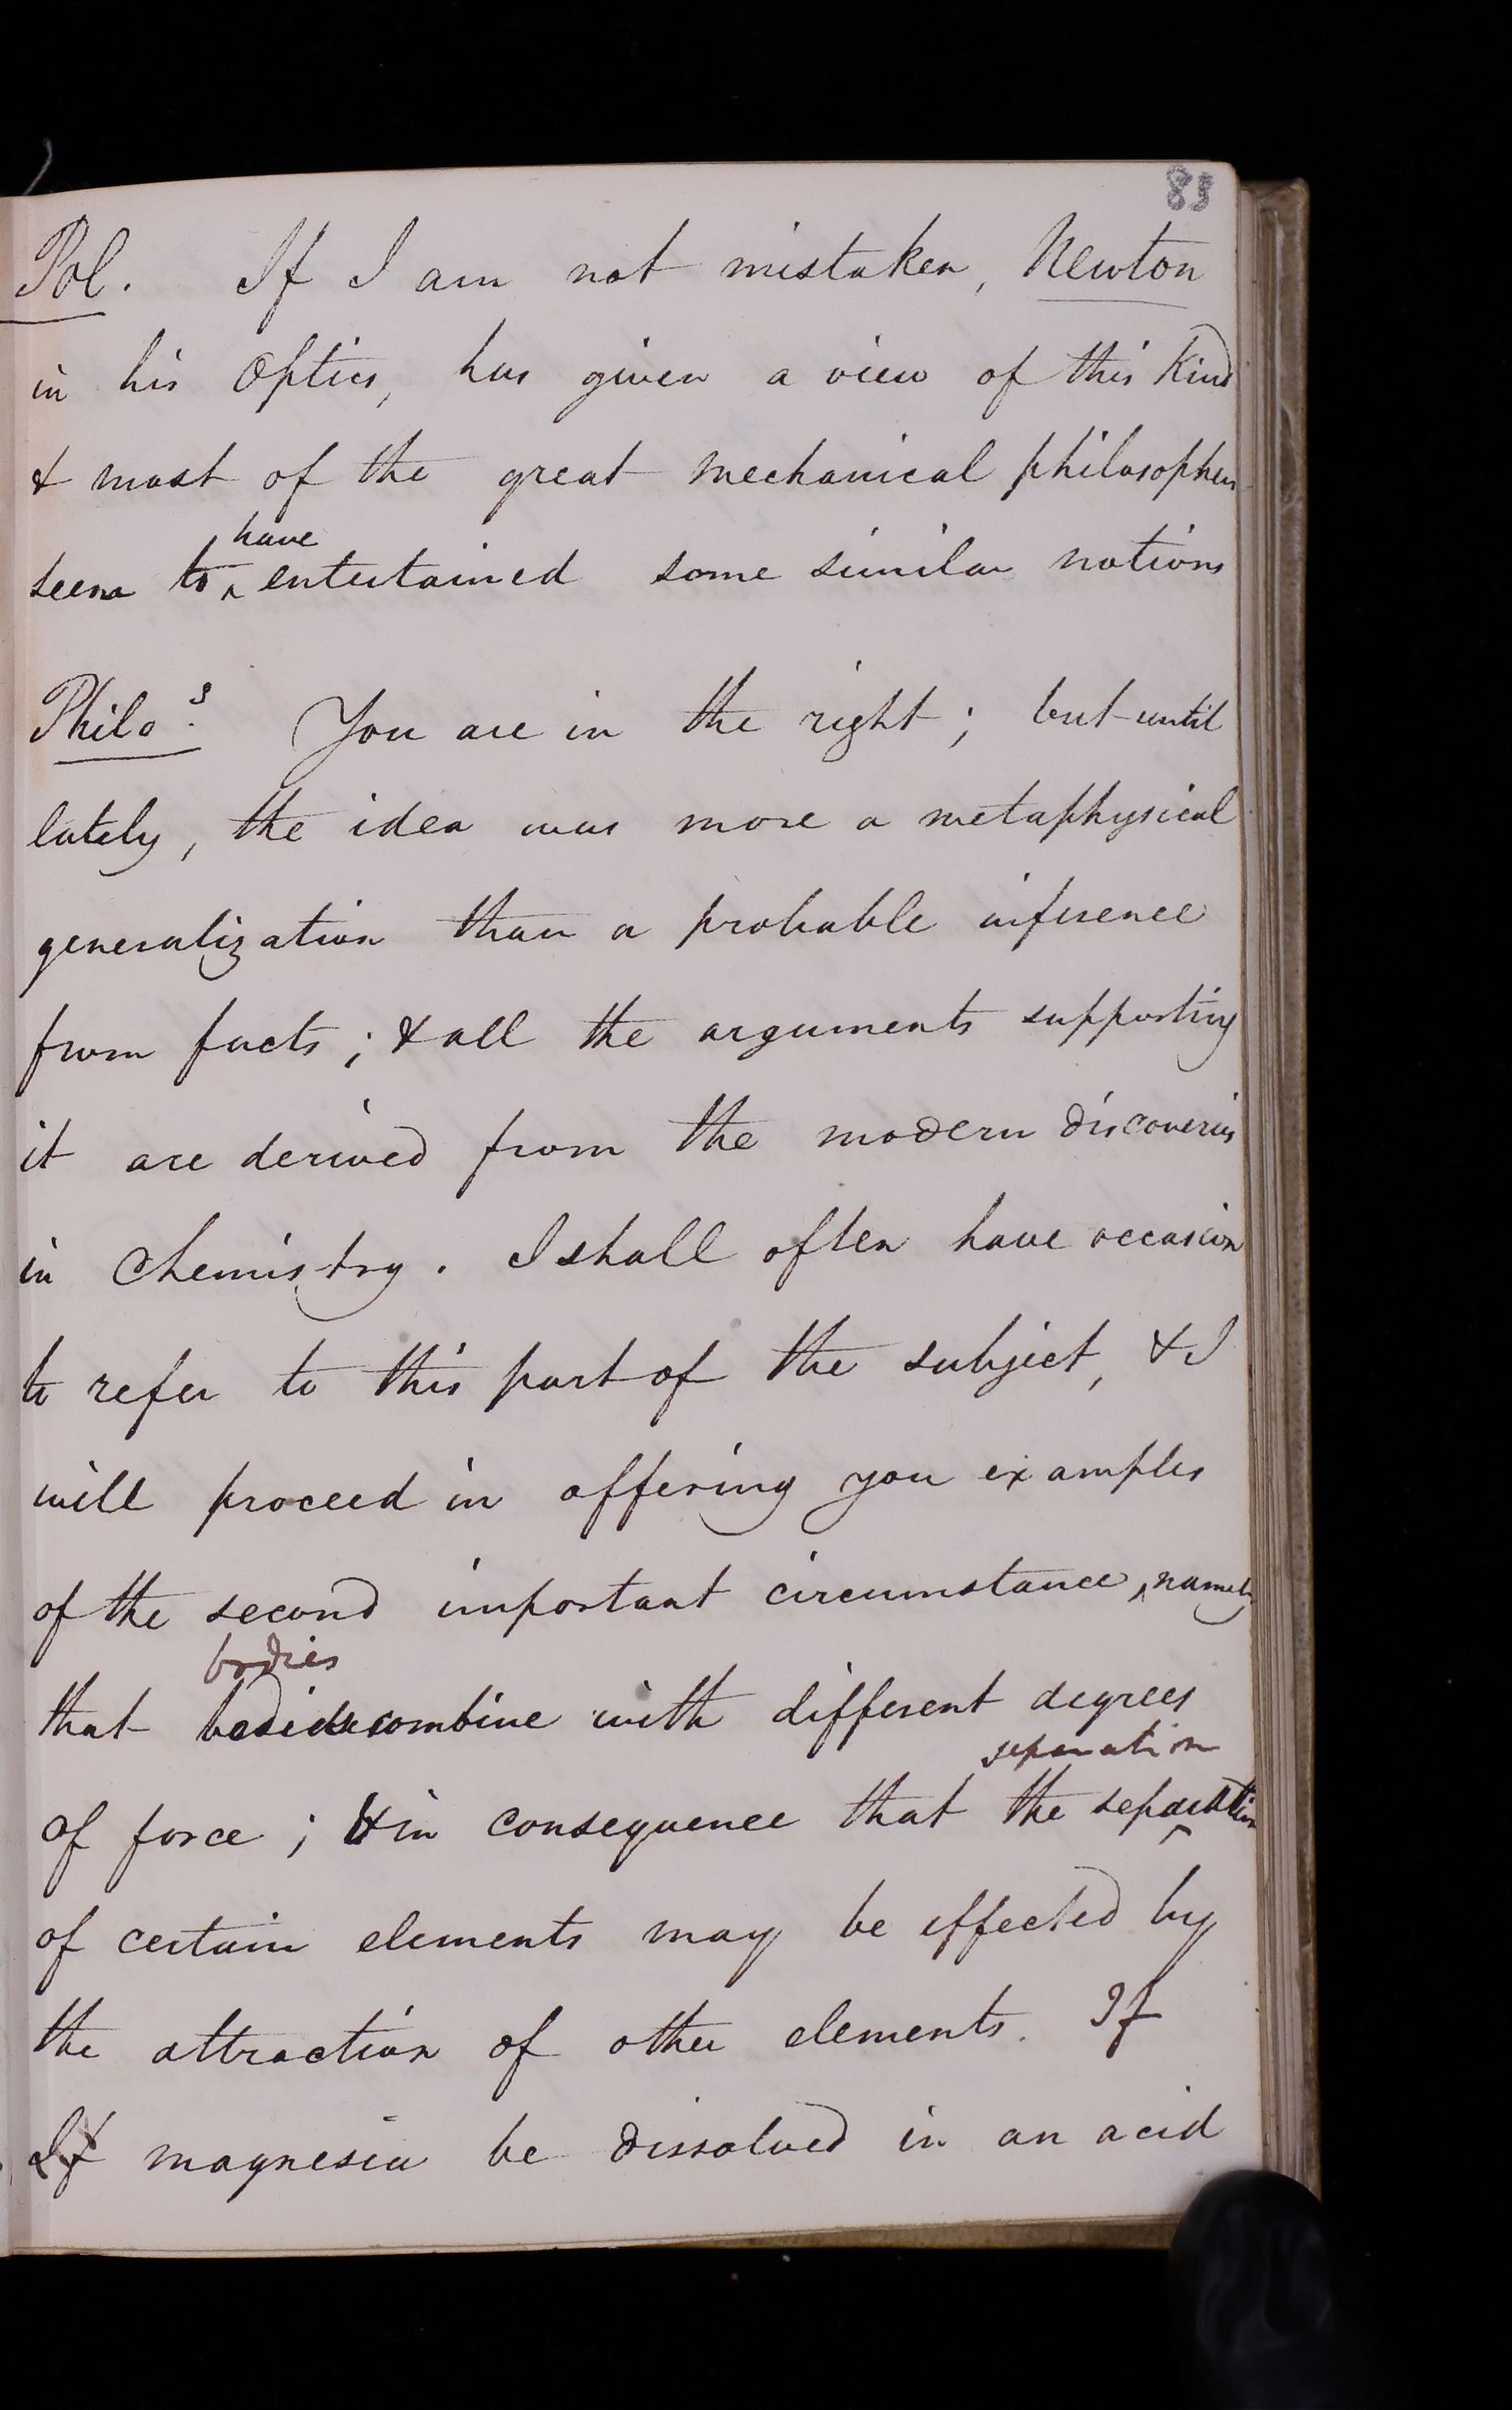 83
Pol. If I am not mistaken, Newton
in his Optics, has given a view of this kind
& most of the great mechanical philosophers
have
seem to entertained some similar notions
Philos. You are in the right; but until
lately, the idea was more a metaphysical
generalization than a probable inference
from facts; & all the arguments supporting
it are derived from the modern discoveries
in Chemistry. I shall often have occasion
to refer to this part of the subject, & I
will proceed in offering you examples
of the second important circumstance, namely
bodies
that combine with different degrees
separation
of force; & in consequence that the separation
of certain elements may be effected by
the attraction of other elements. If
If magnesia be dissolved in an acid